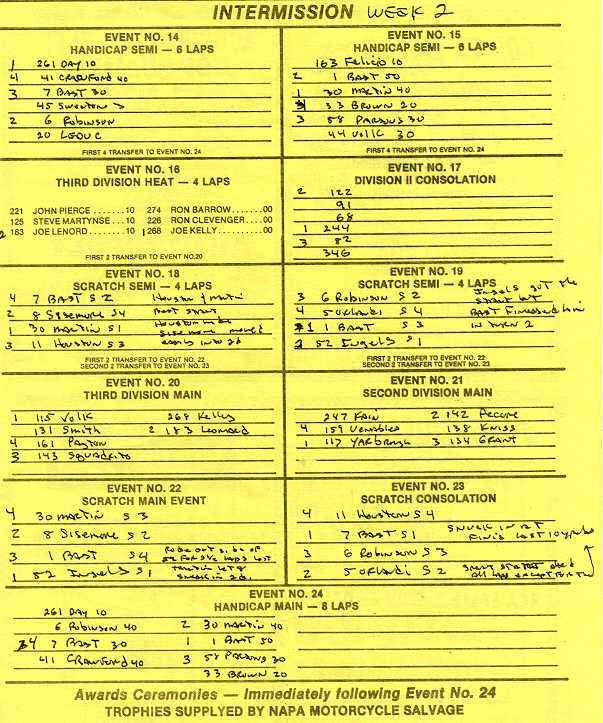 INTERMISSION WEEK 2
EVENT NO. 14
HANDICAP SEMI — 6 LAPS
1 261 DAY 10
4 41 CRAWFORD 40
3 7 BAST 30
45 Sweeton
2 6 Robinson
20 LEDUC
FIRST 4 TRANSFER TO EVENT NO. 24
EVENT NO. 15
HANDICAP SEMI — 6 LAPS
163 Felicio 10
2 1 BAST 50
1 30 MARTIN 40
33 BROWN 20
3 58 PARSONS 30
44 VOLLK 30
FIRST 4 TRANSFER TO EVENT NO. 24
EVENT NO. 16
THIRD DIVISION HEAT — 4 LAPS
221 JOHN PIERCE ....... 10 274 RON BARROW ...... 00
125 STEVE MARTYNSE ... 10 226 RON CLEVENGER .... 00
2 183 JOE LENORD ....... 10 1 268 JOE KELLY ........ 00
FIRST 2 TRANSFER TO EVENT NO.20
EVENT NO. 17
DIVISION II CONSOLATION
2 122
91
68
1 244
3 82
346
EVENT NO. 18
SCRATCH SEMI — 4 LAPS
4 7 BAST S2 Houston & Martin
2 8 Sisemore S4 Best start
1 30 MARTIN S1 Houston wide
3 11 Houston S3 Sisemore moved easily into 2d
FIRST 2 TRANSFER TO EVENT NO. 22
SECOND 2 TRANSFER TO EVENT NO. 23
EVENT NO. 19
SCRATCH SEMI — 4 LAPS
3 6 Robinson S2 Ingels got the start but
4 5 Orlandi S4 BAST Finessed him
1 1 BAST S3 in turn 2
2 52 Ingels S1
FIRST 2 TRANSFER TO EVENT NO. 22
SECOND 2 TRANSFER TO EVENT NO. 23
EVENT NO. 20
THIRD DIVISION MAIN
1 115 Volk 268 Kelly
131 Smith 2 183 Leonard
4 161 Payton
3 143 Squadrito
EVENT NO. 21
SECOND DIVISION MAIN
247 KAIN 2 142
4 159 Venables 138 Kniss
1 117 YARBrough 3 134 GRANT
EVENT NO. 22
SCRATCH MAIN EVENT
4 30 MARTIN S3
2 8 Sisemore S2
3 1 BAST S4 Rode outside of 52 for laps lost
1 52 Ingels S1 sneak in 2d.
EVENT NO. 23
SCRATCH CONSOLATION
4 11 Houston S4
1 7 BAST S1 Snuck in at Finis last 10 yards
3 6 Robinson S3
2 5 Orlandi S2 all way except for the
EVENT NO. 24
HANDICAP MAIN — 8 LAPS
261 DAY 10
6 Robinson 40 2 30 MARTIN 40
4 7 BAST 30 1 1 BAST 50
41 CRAWFORD 40 3 58 PARSONS 30
33 BROWN 20
Awards Ceremonies — Immediately following Event No. 24
TROPHIES SUPPLYED BY NAPA MOTORCYCLE SALVAGE